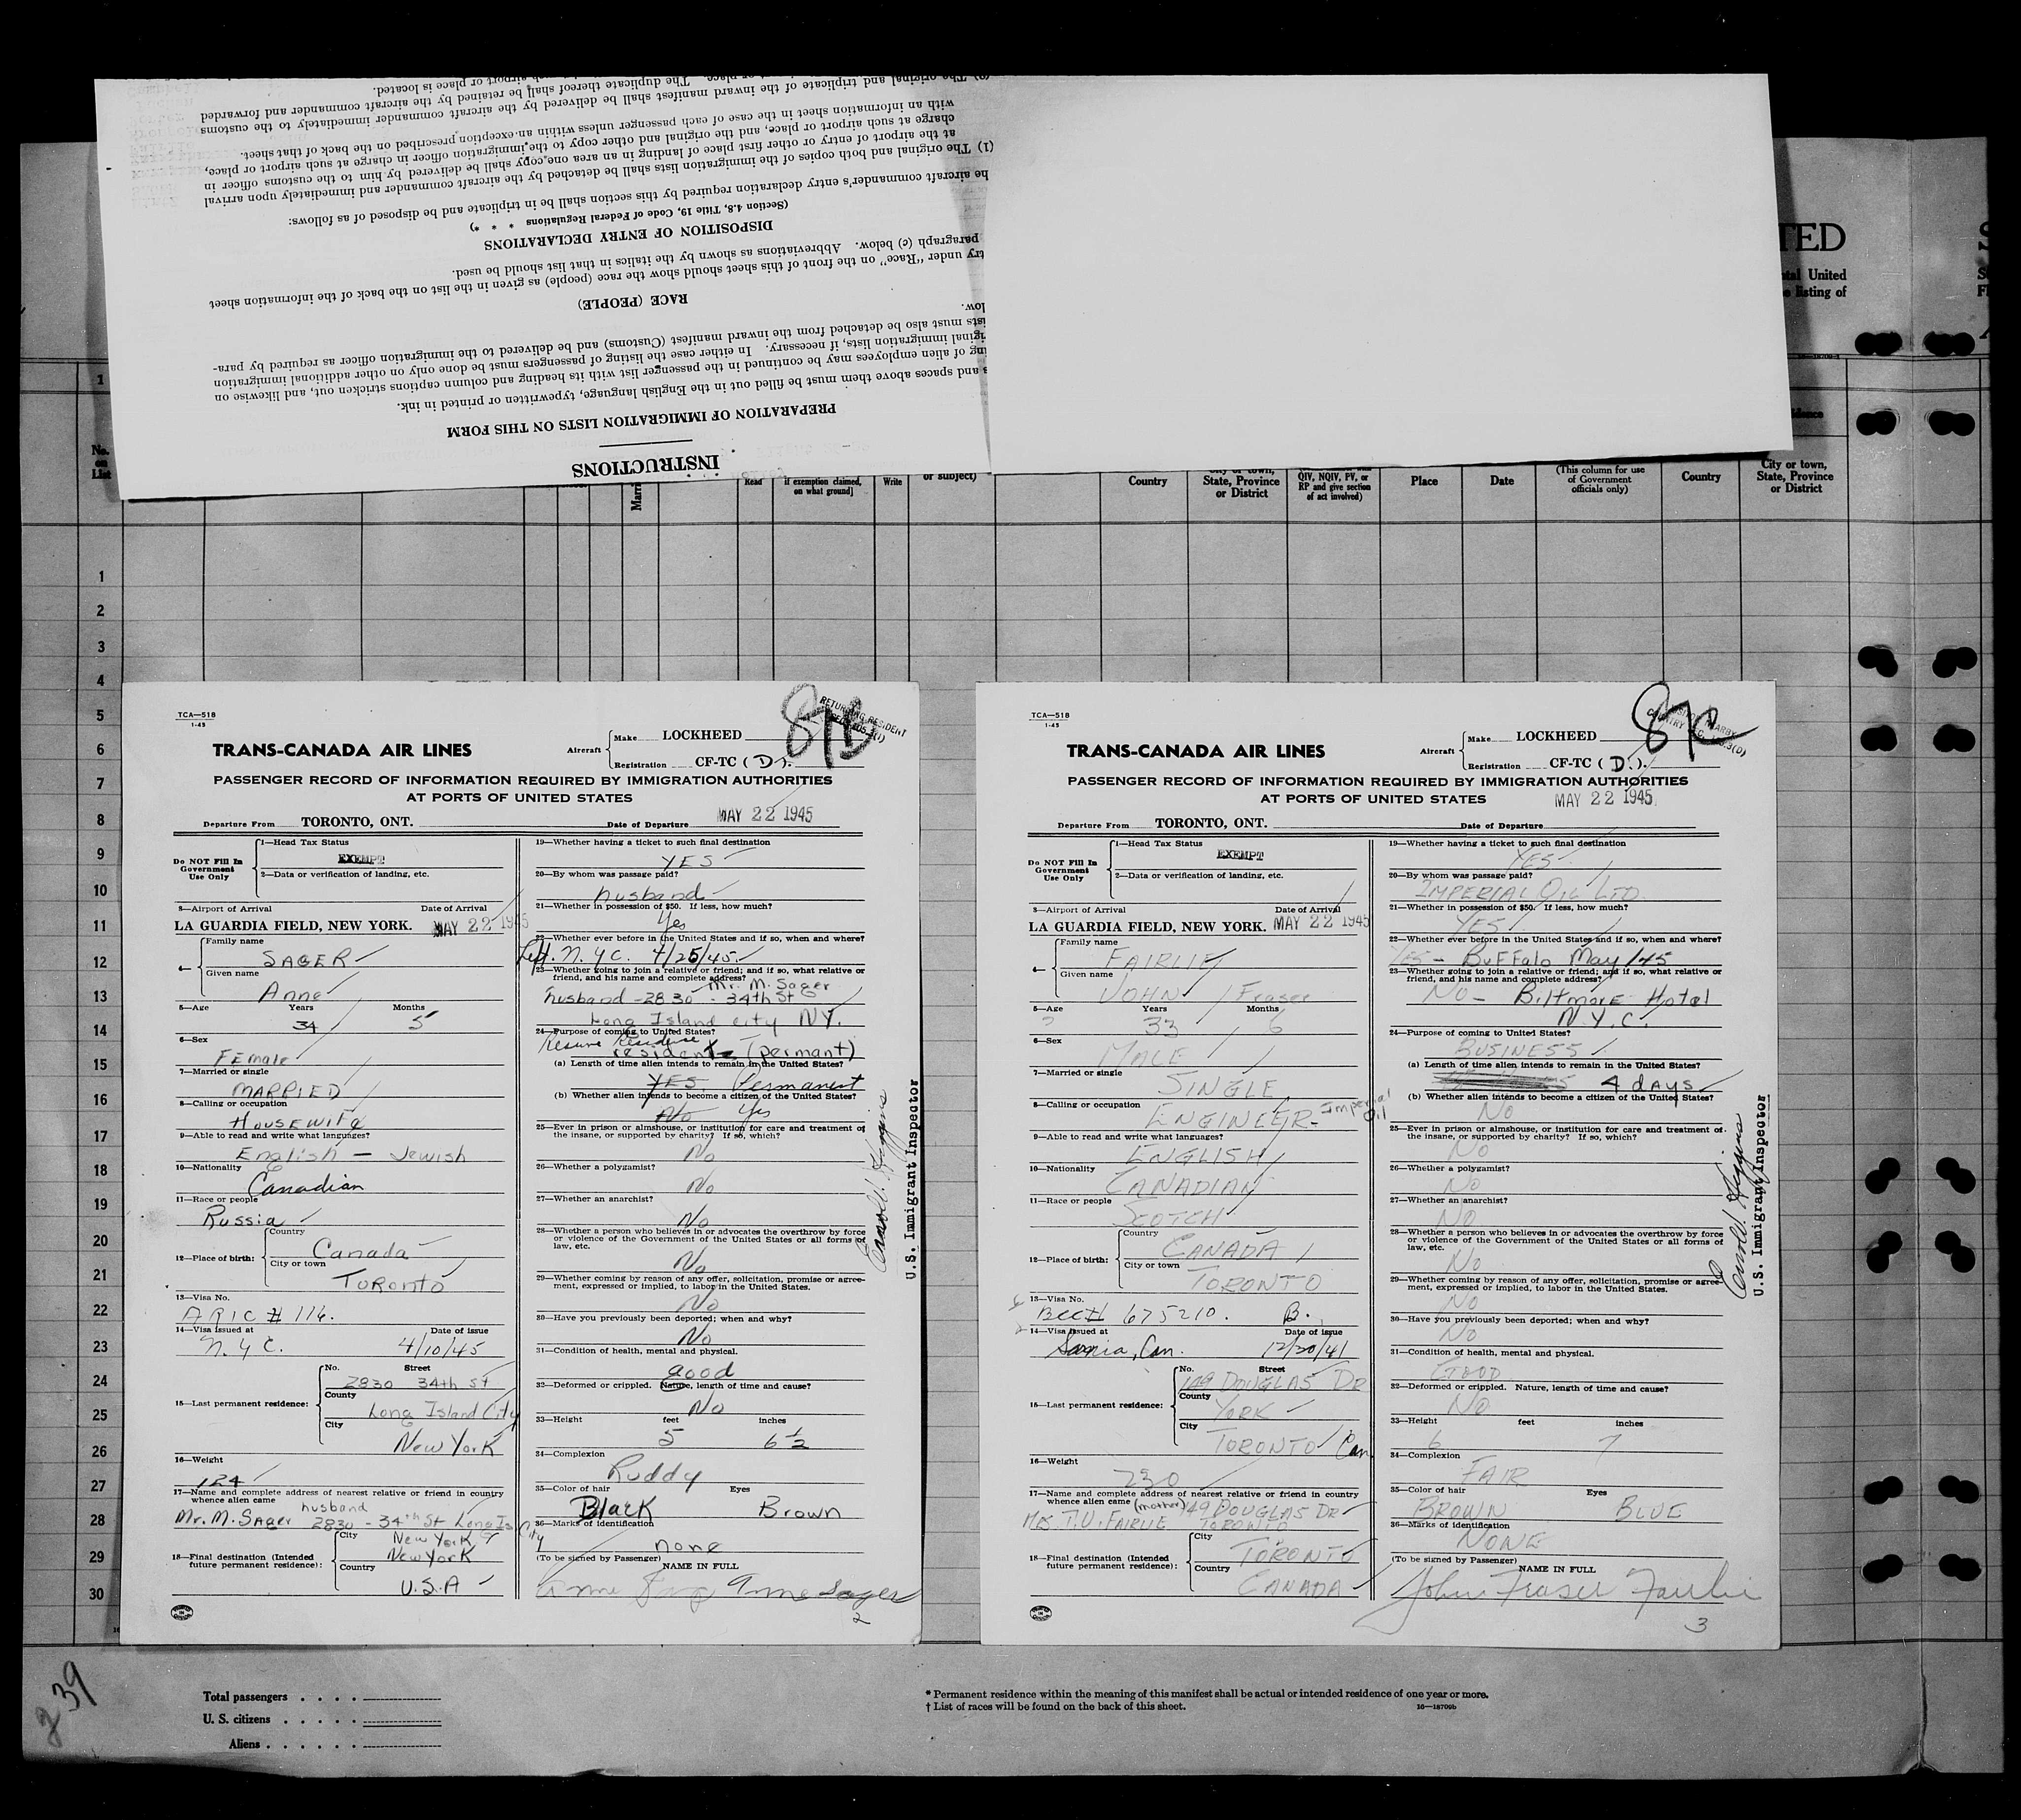 INSTRUCTIONS
PREPARATION OF IMMIGRATION LISTS ON THIS FORM
and spaces above them must be filled out in the English language, typewritten or printed in ink.
ing of alien employees may be continued in the passenger list with its heading and column captions stricken out, and likewise on
original immigration lists, if necessary. In either case the listing of passengers must be done only on other additional immigration
ists must also be detached from the inward manifest (Customs) and be delivered to the immigration officer as required by para-
low.
RACE (PEOPLE)
try under "Race" on the front of this sheet should show the race (people) as given in the list on the back of the information sheet
paragraph (c) below. Abbreviations as shown by the italics in that list should be used.
DISPOSITION OF ENTRY DECLARATIONS
(Section 4.8, Title 19, Code of Federal Regulations * * *)
he aircraft commander's entry declaration required by this section shall be in triplicate and be disposed of as follows:
(1) The original and both copies of the immigration lists shall be detached by the aircraft commander and immediately upon arrival
at the airport of entry or other first place of landing in an area one copy shall be delivered by him to the customs officer in
charge at such airport or place, and the original and other copy to the immigration officer in charge at such airport or place,
with an information sheet in the case of each passenger unless within an exception prescribed on the back of that sheet.
(2) The original and triplicate of the inward manifest shall be delivered by the aircraft commander immediately to the customs
The duplicate thereof shall be retained by the aircraft commander and forwarded
such airport or place is located.
TED
tal United
e listing of
No. on List
Read
if exemption claimed, on what ground]
Write
or subject)
Country
City or town, State, Province or District
QIV, NQIV, PV, or RP and give section of act involved)
Place
Date
(This column for use of Government officials only)
Country
City or town, State, Province or District
1
1
2
3
4
5
6
7
8
9
10
11
12
13
14
15
16
17
18
19
20
21
22
23
24
25
26
27
28
29
30
TCA—518
1-45
TRANS-CANADA AIR LINES
Aircraft
Make LOCKHEED
Registration CF-TC ( D ).
RETURNING RESIDENT
PASSENGER RECORD OF INFORMATION REQUIRED BY IMMIGRATION AUTHORITIES
AT PORTS OF UNITED STATES
MAY 22 1945
Departure From TORONTO, ONT. Date of Departure
Do NOT Fill In Government Use Only
1—Head Tax Status
EXEMPT
2—Data or verification of landing, etc.
3—Airport of Arrival Date of Arrival
LA GUARDIA FIELD, NEW YORK. MAY 22 1945
4—
Family name
SAGER
Given name
Anne
5—Age Years Months
34 5
6—Sex
Female
7—Married or single
MARRIED
8—Calling or occupation
Housewife
9—Able to read and write what languages?
English — Jewish
10—Nationality
Canadian
11—Race or people
Russia
12—Place of birth:
Country
Canada
City or town
Toronto
13—Visa No.
ARIC # 116.
14—Visa issued at Date of issue
N.Y.C. 4/10/45
15—Last permanent residence:
No. Street
2830 34th St
County
Long Island City
City
New York
16—Weight
124
17—Name and complete address of nearest relative or friend in country
whence alien came husband
Mr. M. Sager 2830 - 34th St Long Is City
18—Final destination (Intended future permanent residence):
City New York
New York
Country
U.S.A
19—Whether having a ticket to such final destination
YES
20—By whom was passage paid?
husband
21—Whether in possession of $50. If less, how much?
Yes
22—Whether ever before in the United States and if so, when and where?
Left. N.Y.C. 4/25/45.
23—Whether going to join a relative or friend; and if so, what relative or
friend, and his name and complete address? Mr. M. Sager
husband - 2830 - 34th St
Long Island city NY.
24—Purpose of coming to United States?
Resume Residence
resident (permant)
(a) Length of time alien intends to remain in the United States?
YES. Permanent
(b) Whether alien intends to become a citizen of the United States?
No Yes
25—Ever in prison or almshouse, or institution for care and treatment of
the insane, or supported by charity? If so, which?
No
26—Whether a polygamist?
No
27—Whether an anarchist?
No
28—Whether a person who believes in or advocates the overthrow by force
or violence of the Government of the United States or all forms of
law, etc.
No
29—Whether coming by reason of any offer, solicitation, promise or agree-
ment, expressed or implied, to labor in the United States.
No
30—Have you previously been deported; when and why?
No
31—Condition of health, mental and physical.
good
32—Deformed or crippled. Nature, length of time and cause?
No
33—Height feet inches
5 6½
34—Complexion
Ruddy
35—Color of hair Eyes
Black Brown
36—Marks of identification
none
(To be signed by Passenger) NAME IN FULL
Anne Sager
2
U.S. Immigrant Inspector
TCA—518
1-45
TRANS-CANADA AIR LINES
Aircraft
Make LOCKHEED
Registration CF-TC ( D. ).
PASSENGER RECORD OF INFORMATION REQUIRED BY IMMIGRATION AUTHORITIES
AT PORTS OF UNITED STATES
MAY 22 1945
Departure From TORONTO, ONT. Date of Departure
Do NOT Fill In Government Use Only
1—Head Tax Status
EXEMPT
2—Data or verification of landing, etc.
3—Airport of Arrival Date of Arrival
LA GUARDIA FIELD, NEW YORK. MAY 22 1945
4—
Family name
FAIRLIE
Given name
JOHN Fraser
5—Age Years Months
33 6
6—Sex
MALE
7—Married or single
SINGLE
8—Calling or occupation
ENGINEER- Imperial Oil
9—Able to read and write what languages?
ENGLISH
10—Nationality
CANADIAN
11—Race or people
SCOTCH
12—Place of birth:
Country
CANADA
City or town
TORONTO
13—Visa No.
BCC# 675210. B.
14—Visa issued at Date of issue
Sarnia, Can. 12/20/41
15—Last permanent residence:
No. Street
149 DOUGLAS DR
County
YORK
City
TORONTO Can
16—Weight
230
17—Name and complete address of nearest relative or friend in country
whence alien came (mother) 149 DOUGLAS DR
MRS. T.U. FAIRLIE TORONTO
18—Final destination (Intended future permanent residence):
City
TORONTO
Country
CANADA
19—Whether having a ticket to such final destination
YES
20—By whom was passage paid?
IMPERIAL OIL LTD.
21—Whether in possession of $50. If less, how much?
YES
22—Whether ever before in the United States and if so, when and where?
YES - Buffalo May/45
23—Whether going to join a relative or friend; and if so, what relative or
friend, and his name and complete address?
No - Biltmore Hotel
N.Y.C.
24—Purpose of coming to United States?
BUSINESS
(a) Length of time alien intends to remain in the United States?
4 days
(b) Whether alien intends to become a citizen of the United States?
No
25—Ever in prison or almshouse, or institution for care and treatment of
the insane, or supported by charity? If so, which?
No
26—Whether a polygamist?
No
27—Whether an anarchist?
No
28—Whether a person who believes in or advocates the overthrow by force
or violence of the Government of the United States or all forms of
law, etc.
No
29—Whether coming by reason of any offer, solicitation, promise or agree-
ment, expressed or implied, to labor in the United States.
No
30—Have you previously been deported; when and why?
No
31—Condition of health, mental and physical.
GOOD
32—Deformed or crippled. Nature, length of time and cause?
No
33—Height feet inches
6 7
34—Complexion
FAIR
35—Color of hair Eyes
BROWN BLUE
36—Marks of identification
NONE
(To be signed by Passenger) NAME IN FULL
John Fraser Fairlie
3
U.S. Immigrant Inspector
239
Total passengers
U. S. citizens
Aliens
* Permanent residence within the meaning of this manifest shall be actual or intended residence of one year or more.
† List of races will be found on the back of this sheet.
16—18709b